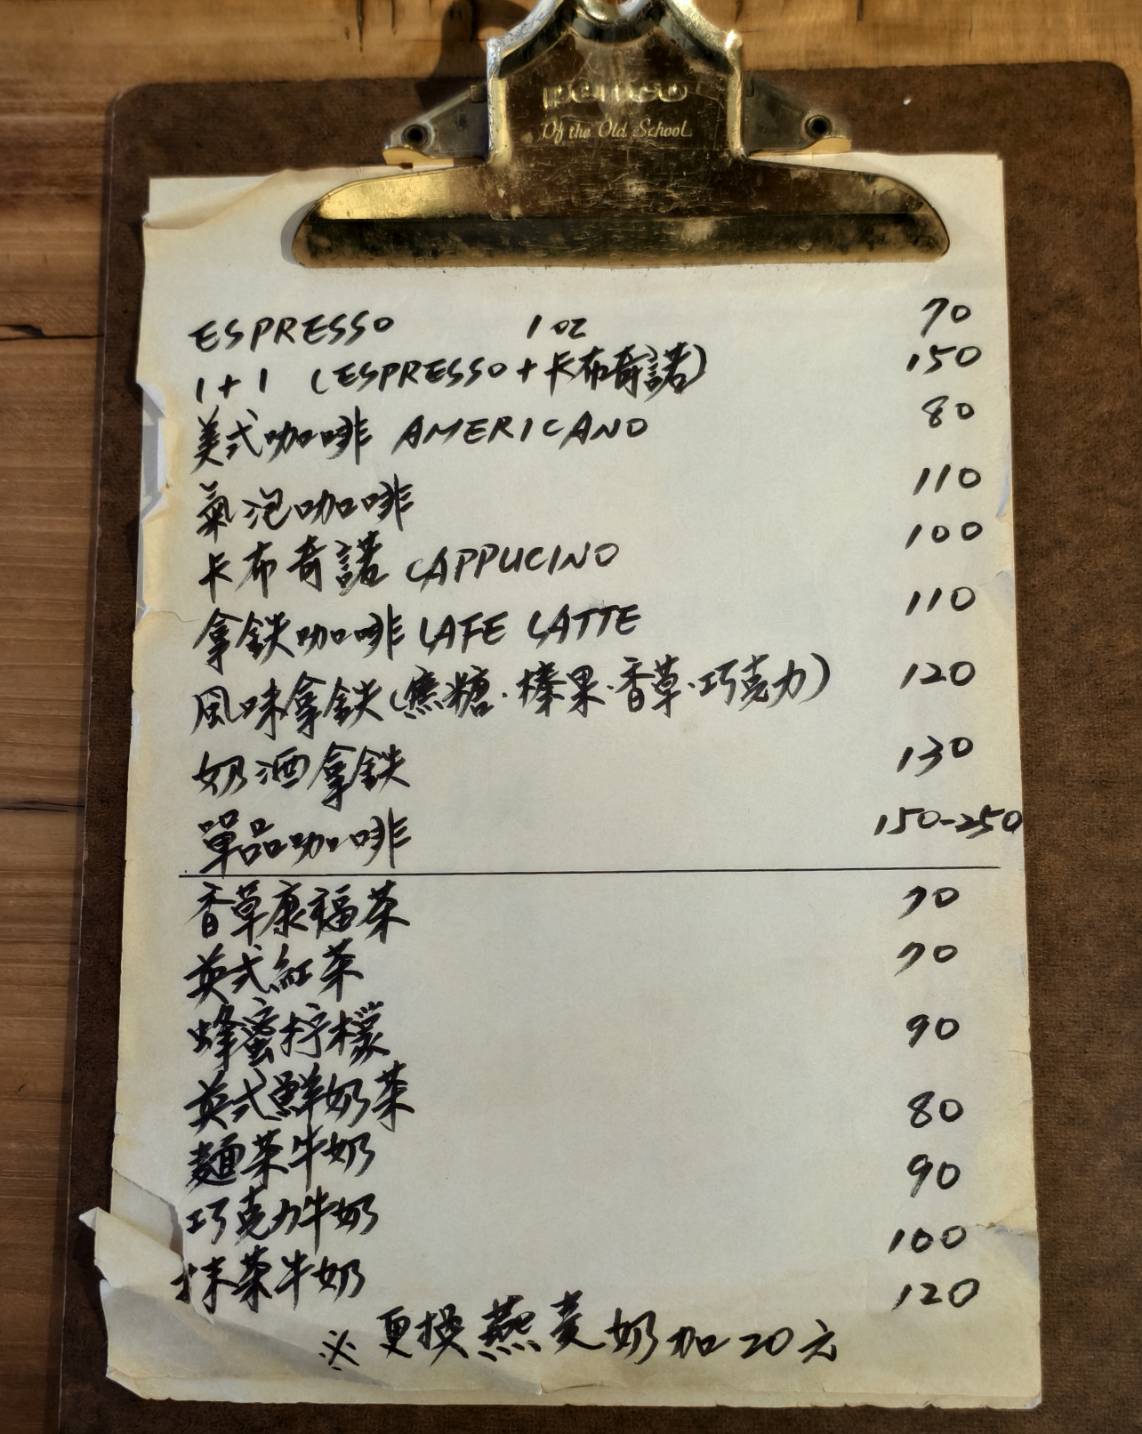 Of the Old School
ESPRESSO 1 oz 70
1+1 (ESPRESSO+卡布奇諾) 150
美式咖啡 AMERICANO 80
氣泡咖啡 110
卡布奇諾 CAPPUCINO 100
拿鉄咖啡 CAFE LATTE 110
風味拿鉄(焦糖·榛果·香草·巧克力) 120
奶酒拿鉄 130
單品咖啡 150-250
香草康福茶 70
英式紅茶 70
蜂蜜柠檬 90
英式鮮奶茶 80
麵茶牛奶 90
巧克力牛奶 100
抹茶牛奶 120
※更換燕麦奶加20元